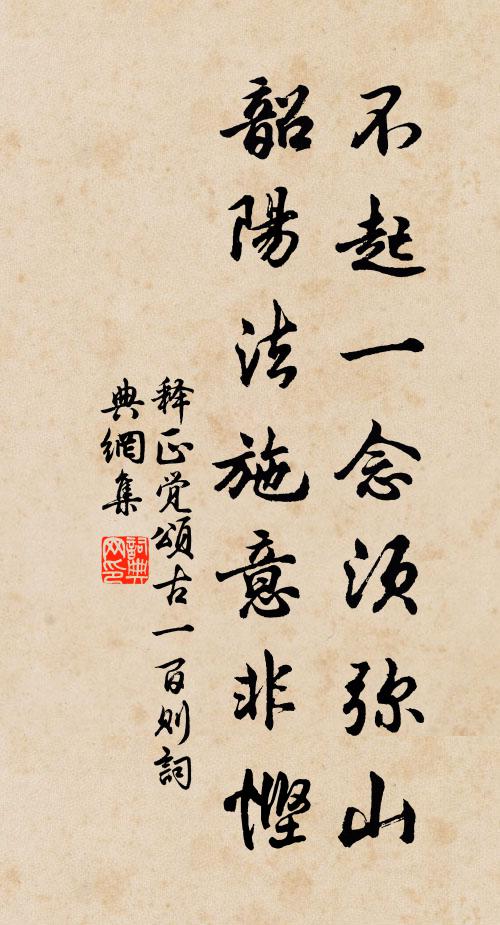 不起一念须弥山
韶陽法施意非慳
释正觉頌古一百则詞
典網集
詞典
网印